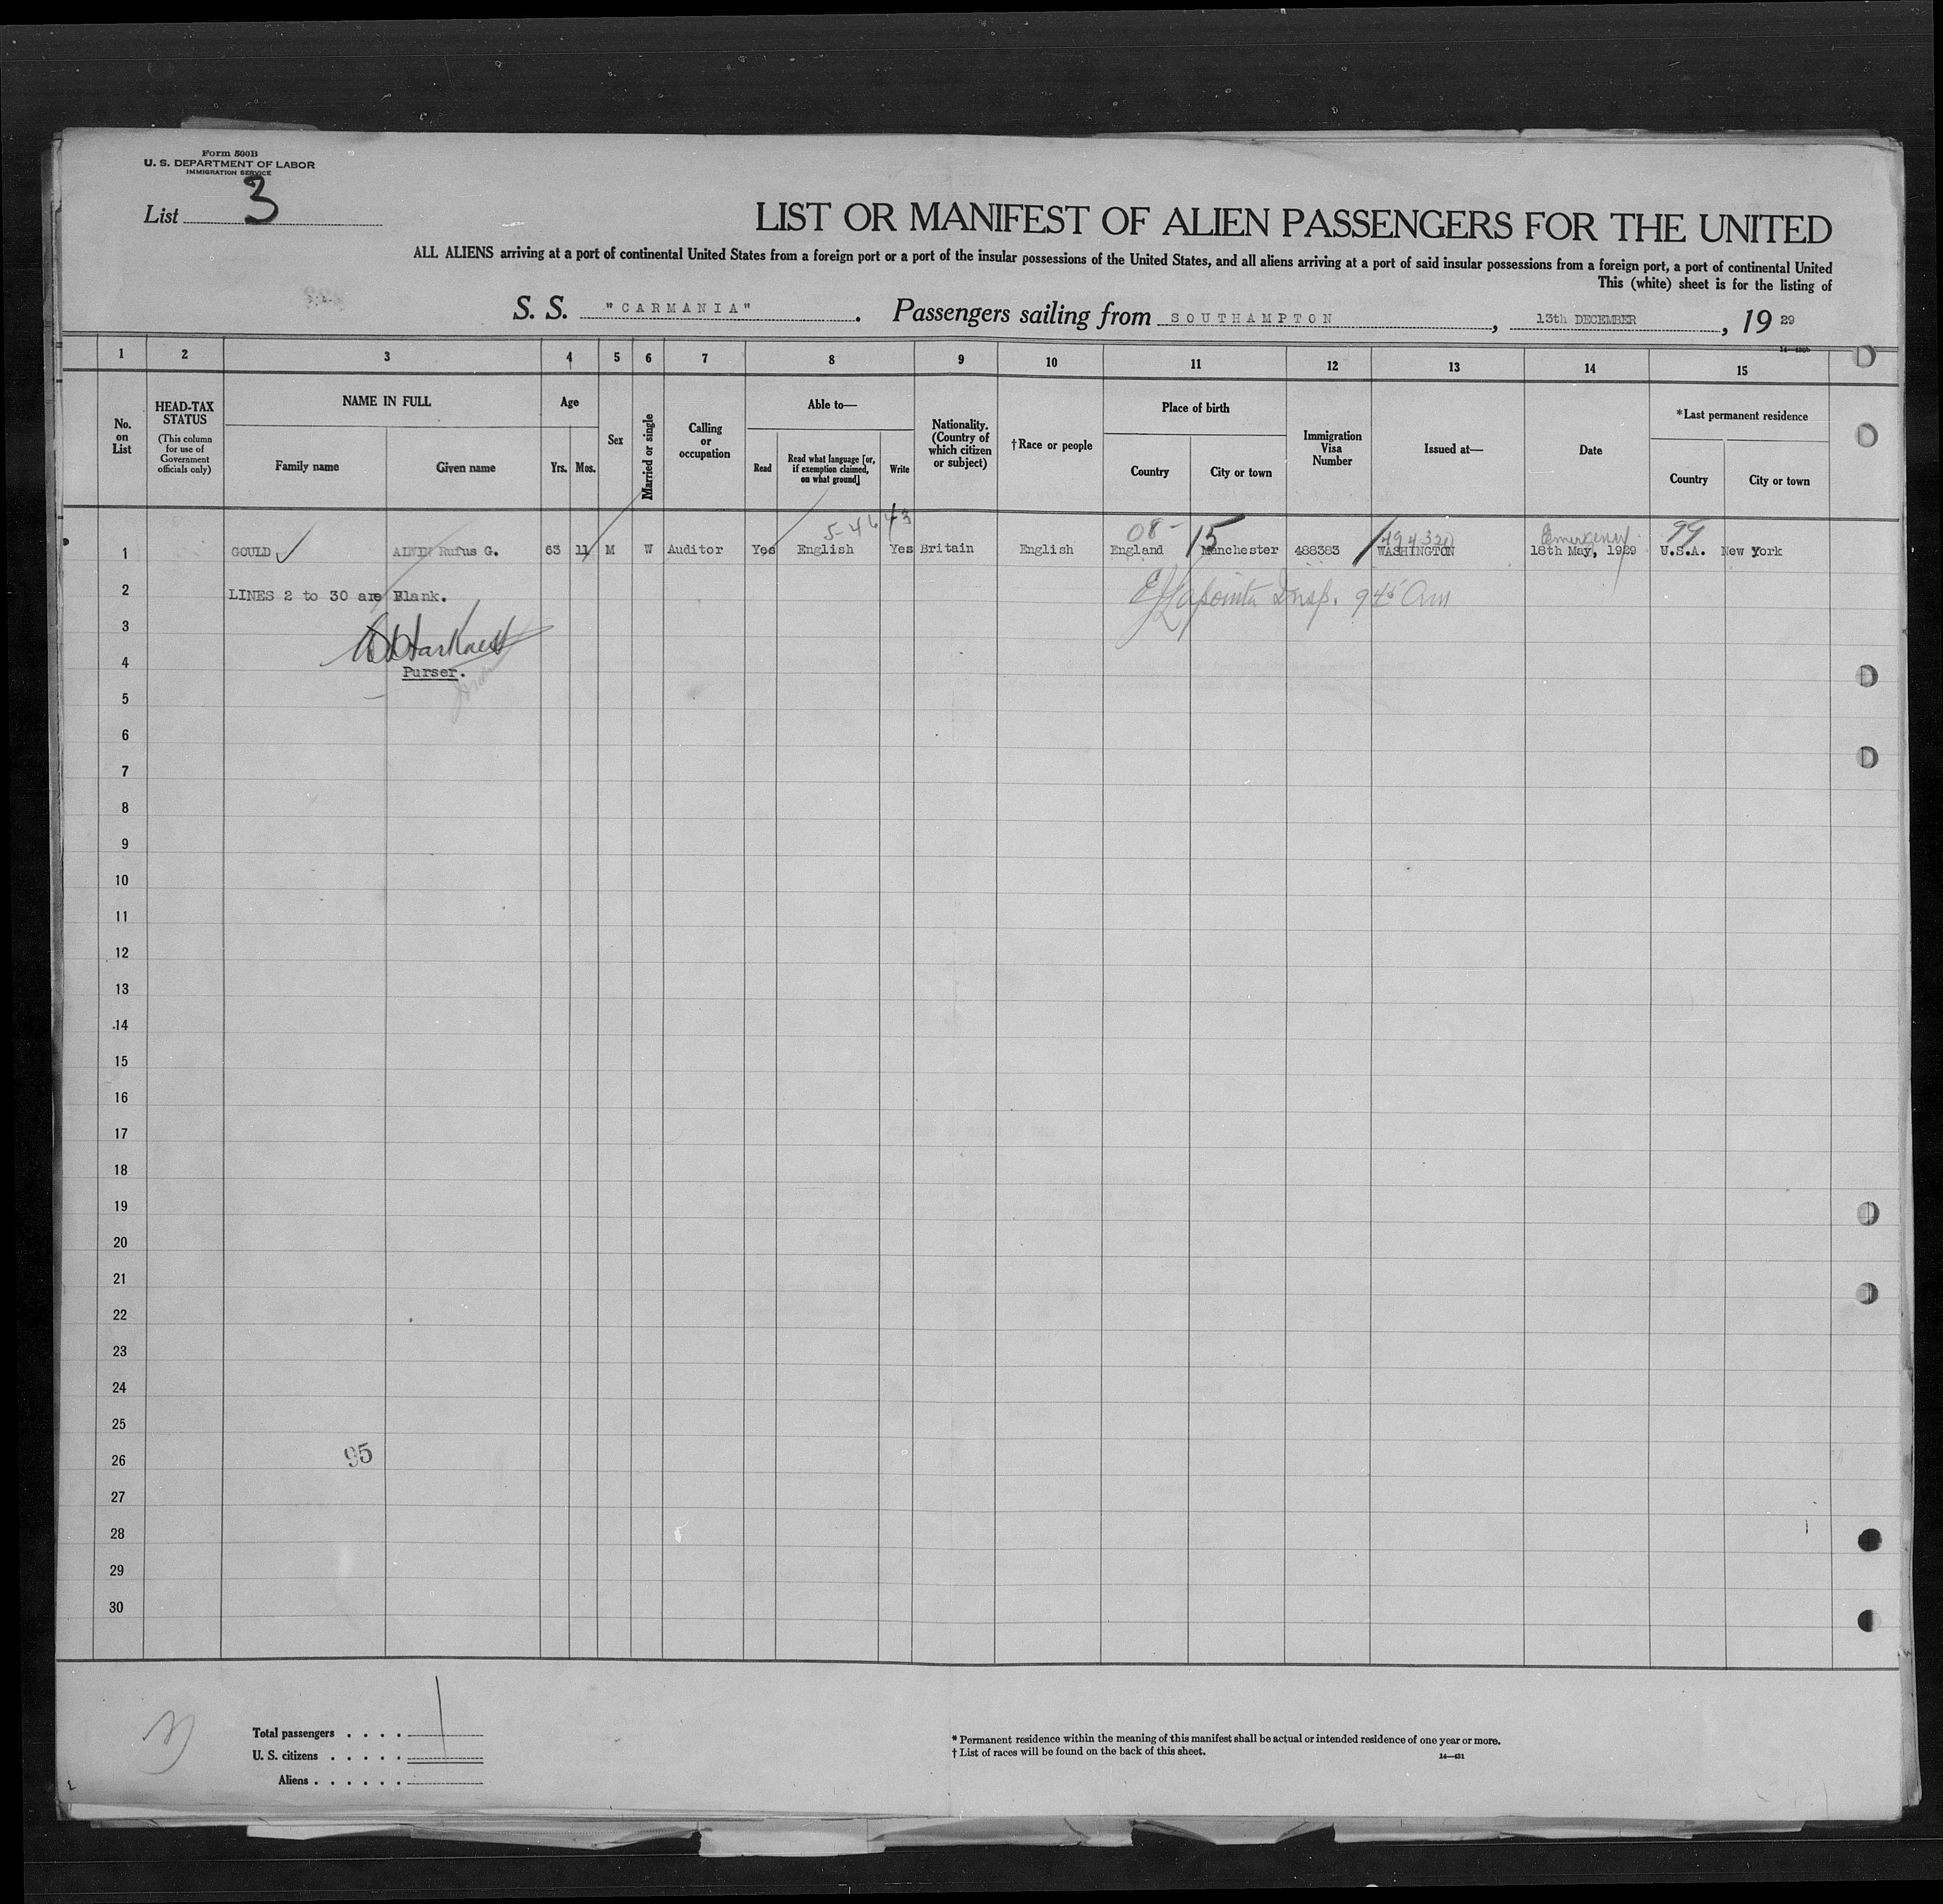 Form 500B
U. S. DEPARTMENT OF LABOR
IMMIGRATION SERVICE
List 3
LIST OR MANIFEST OF ALIEN PASSENGERS FOR THE UNITED
ALL ALIENS arriving at a port of continental United States from a foreign port or a port of the insular possessions of the United States, and all aliens arriving at a port of said insular possessions from a foreign port, a port of continental United
This (white) sheet is for the listing of
S. S. "CARMANIA". Passengers sailing from SOUTHAMPTON, 13th DECEMBER, 19 29
1 2 3 4 5 6 7 8 9 10 11 12 13 14 15
No. on List
HEAD-TAX STATUS
(This column for use of Government officials only)
NAME IN FULL
Family name
Given name
Age
Yrs. Mos.
Sex
Married or single
Calling or occupation
Able to—
Read
Read what language [or, if exemption claimed, on what ground]
Write
Nationality. (Country of which citizen or subject)
†Race or people
Place of birth
Country
City or town
Immigration Visa Number
Issued at—
Date
*Last permanent residence
Country
City or town
08- 15 Emergency 99
1 GOULD Rufus G. 63 11 M W Auditor Yes English Yes Britain English England Manchester 488383 WASHINGTON 18th May, 1929 U.S.A. New York
2 LINES 2 to 30 are Blank.
Insp.
3
4
Purser.
5
6
7
8
9
10
11
12
13
14
15
16
17
18
19
20
21
22
23
24
25
26
95
27
28
29
30
Total passengers . . . . 1
U. S. citizens . . . . .
Aliens . . . . . .
* Permanent residence within the meaning of this manifest shall be actual or intended residence of one year or more.
† List of races will be found on the back of this sheet.
14—431